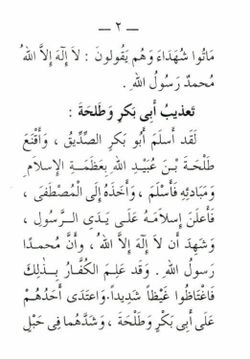 – ٢ –
مَاتُوا شُهَدَاءَ وَهُم يَقُولونَ : لاَ إِلٰهَ إِلاَّ اللهُ
مُحمدٌ رَسُولُ اللهِ .
تَعذِيبُ أَبِي بَكرٍ وَطَلحَةَ :
لَقَد أَسلَمَ أَبُو بَكرٍ الصِّدِّيقُ ، وَأَقْنَعَ
طَلْحَةَ بْنَ عُبَيدِ اللهِ بِعَظَمَةِ الإِسلاَمِ
وَمَبَادِئِهِ فَأَسْلَمَ ، وَأَخَذَهُ إِلَى الْمُصْطَفَى ،
فَأَعْلَنَ إِسلاَمَهُ عَلَى يَدَيِ الرَّسُولِ ،
وَشَهِدَ أَن لاَ إِلٰهَ إِلاَّ اللهُ ، وَأَنَّ مُحَمدًا
رَسُولُ اللهِ . وَقَد عَلِمَ الكُفَّارُ بِذٰلِكَ
فَاغْتَاظُوا غَيْظاً شَدِيداً. وَاعتَدَى أَحَدُهُمْ
عَلَى أَبِي بَكْرٍ وَطَلْحَةَ ، وَشَدَّهُما فِي حَبْلٍ